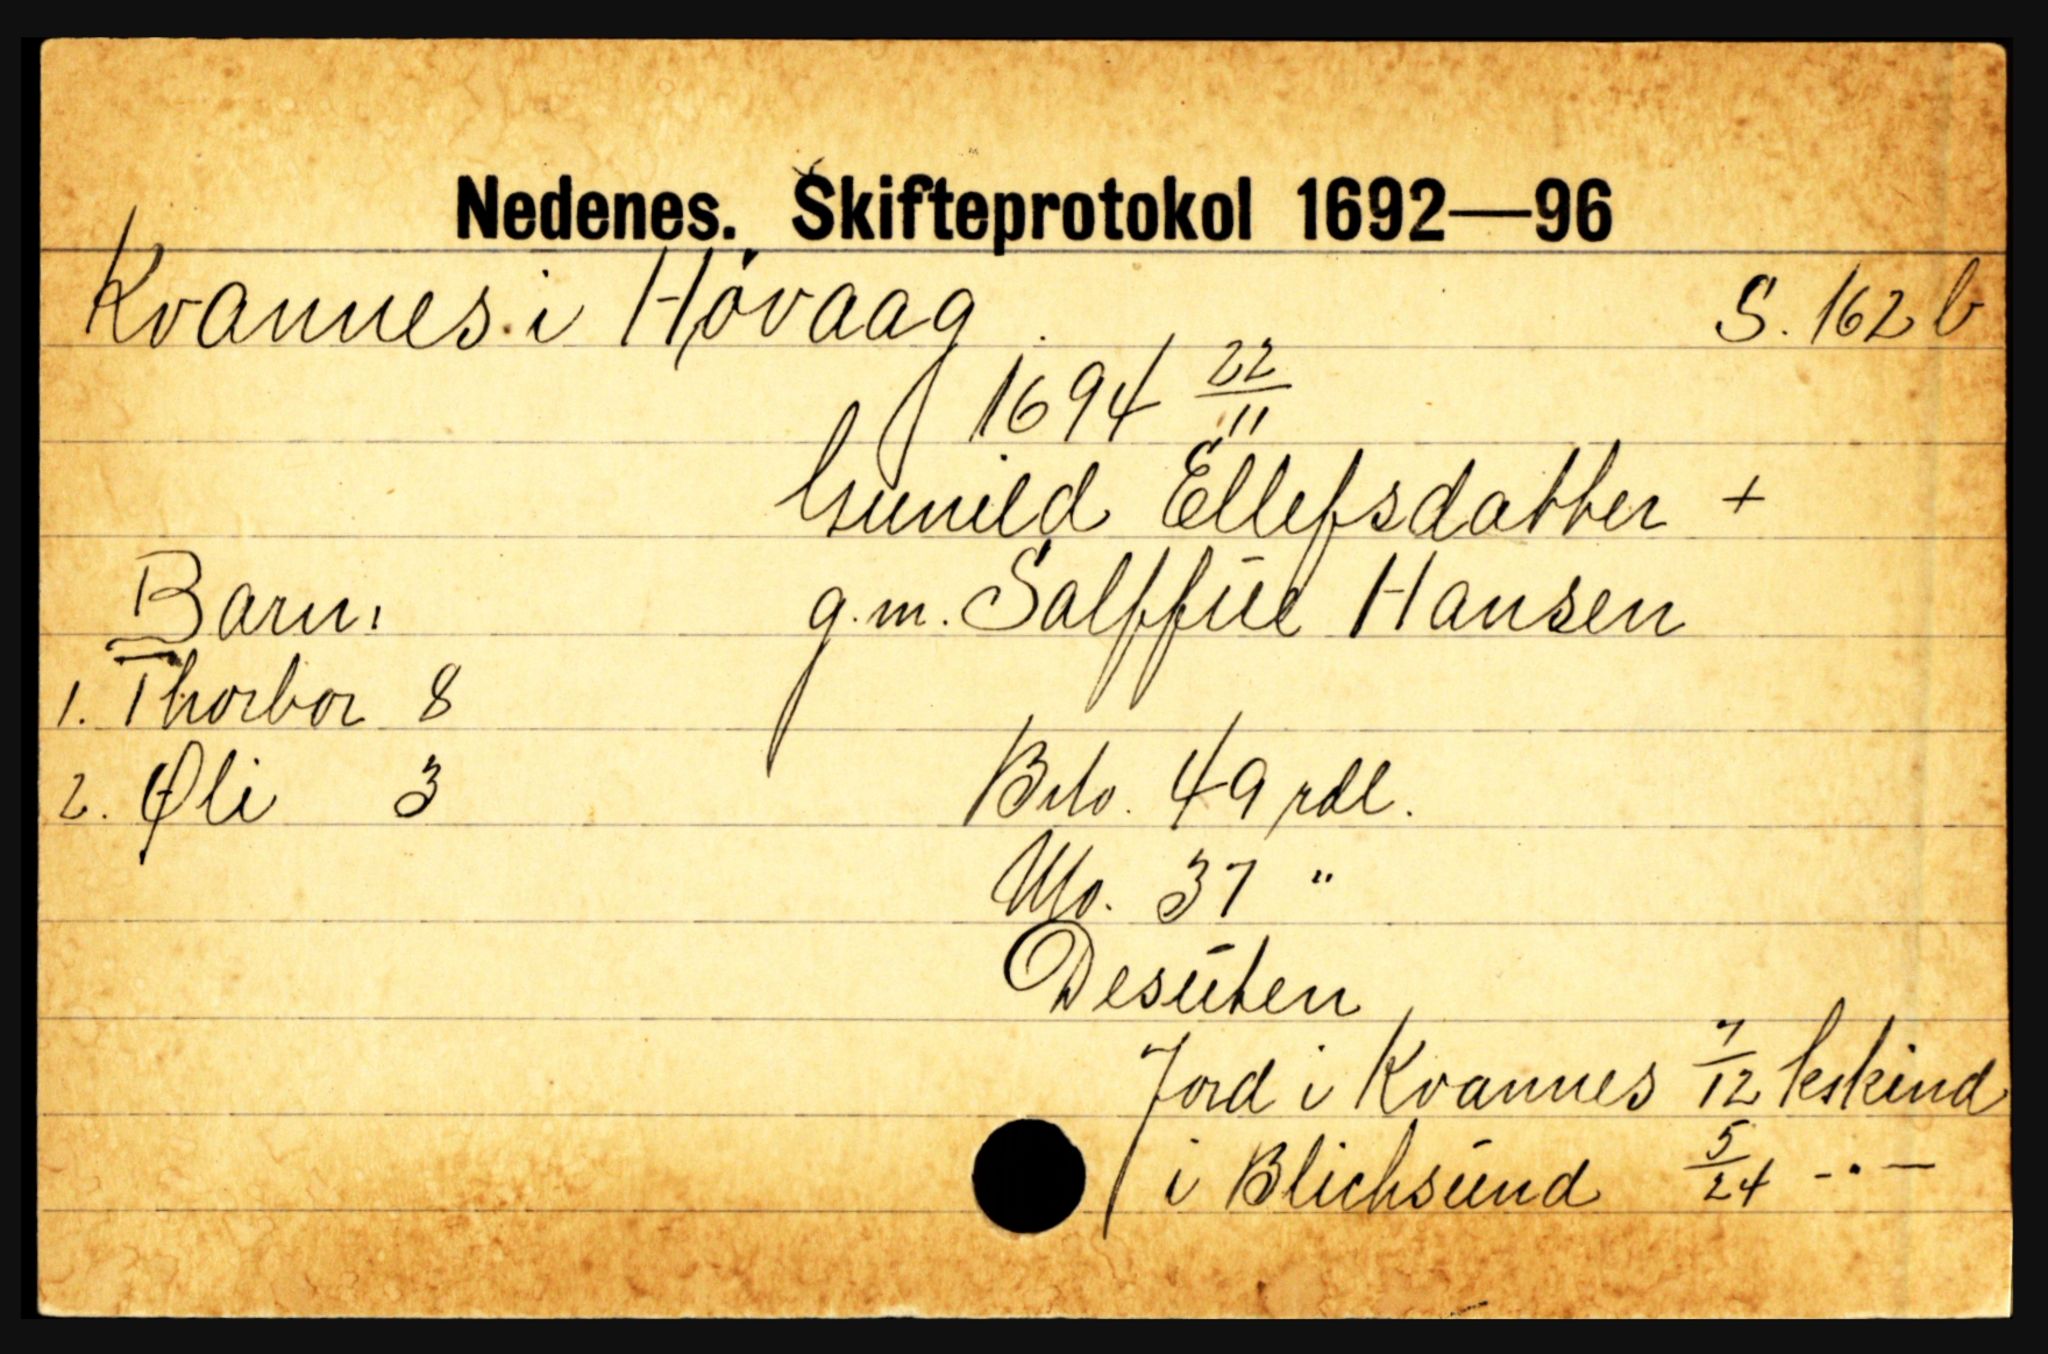 Nedenes. Skifteprotokol 1692—96
Kvannes i Høvaag S. 162 b
1694 22/11
Gunild Ellefsdatter +
Barn: g.m. Salffue Hansen
1. Thorbor 8
2. Oli 3 Bto. 49 rdl.
Nto. 37 "
Desuten
Jord i Kvannes 7/12 kskind
i Blichsund 5/24 -·-